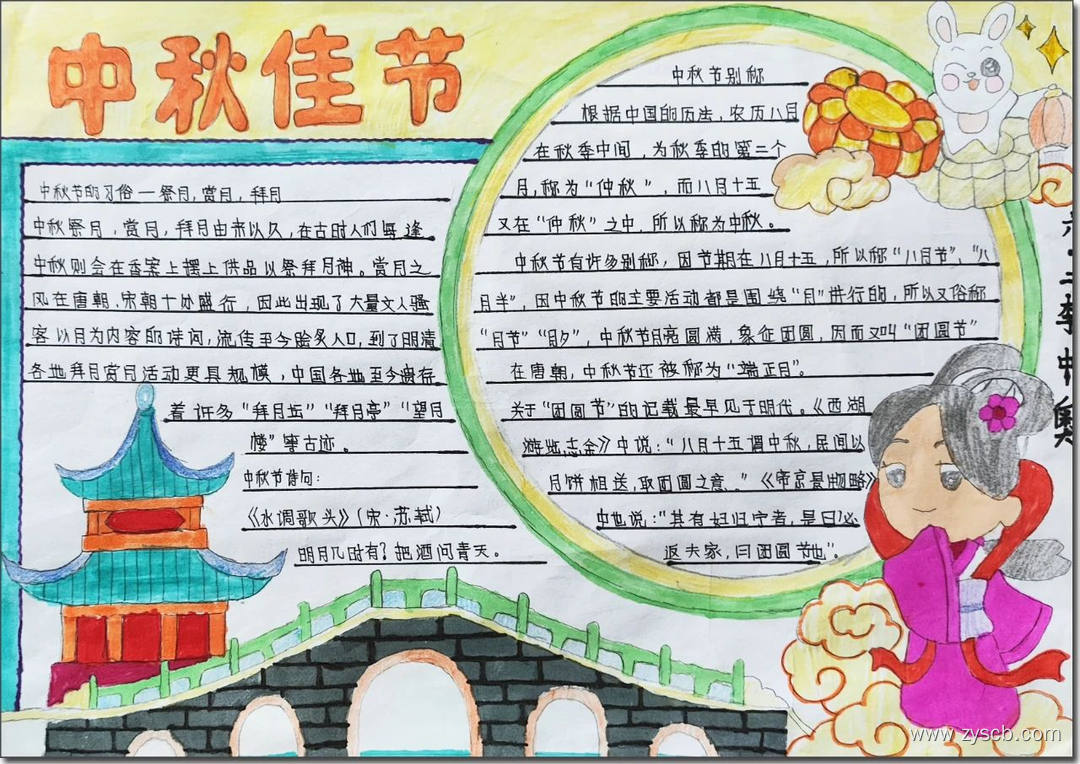 中秋佳节
中秋节的习俗一祭月,赏月,拜月
中秋祭月,赏月,拜月由来以久,在古时人们每逢
中秋则会在香案上摆上供品以祭拜月神。赏月之
风在唐朝、宋朝十分盛行,因此出现了大量文人骚
客以月为内容的诗词,流传至今脍炙人口,到了明清
各地拜月赏月活动更具规模,中国各地至今遗存
着许多“拜月坛”“拜月亭”“望月
楼”等古迹。
中秋节诗句:
《水调歌头》(宋·苏轼)
明月几时有?把酒问青天。
中秋节别称
根据中国的历法,农历八月
在秋季中间,为秋季的第二个
月,称为“仲秋”,而八月十五
又在“仲秋”之中,所以称为中秋。
中秋节有许多别称,因节期在八月十五,所以称“八月节”、“八
月半”,因中秋节的主要活动都是围绕“月”进行的,所以又俗称
“月节”“月夕”,中秋节月亮圆满,象征团圆,因而又叫“团圆节”
在唐朝,中秋节还被称为“端正月”。
关于“团圆节”的记载最早见于明代。《西湖
游览志余》中说:“八月十五谓中秋,民间以
月饼相送,取团圆之意。”《帝京景物略》
中也说:“其有妇归宁者,是日必
返夫家,曰团圆节也”。
www.zyscb.com